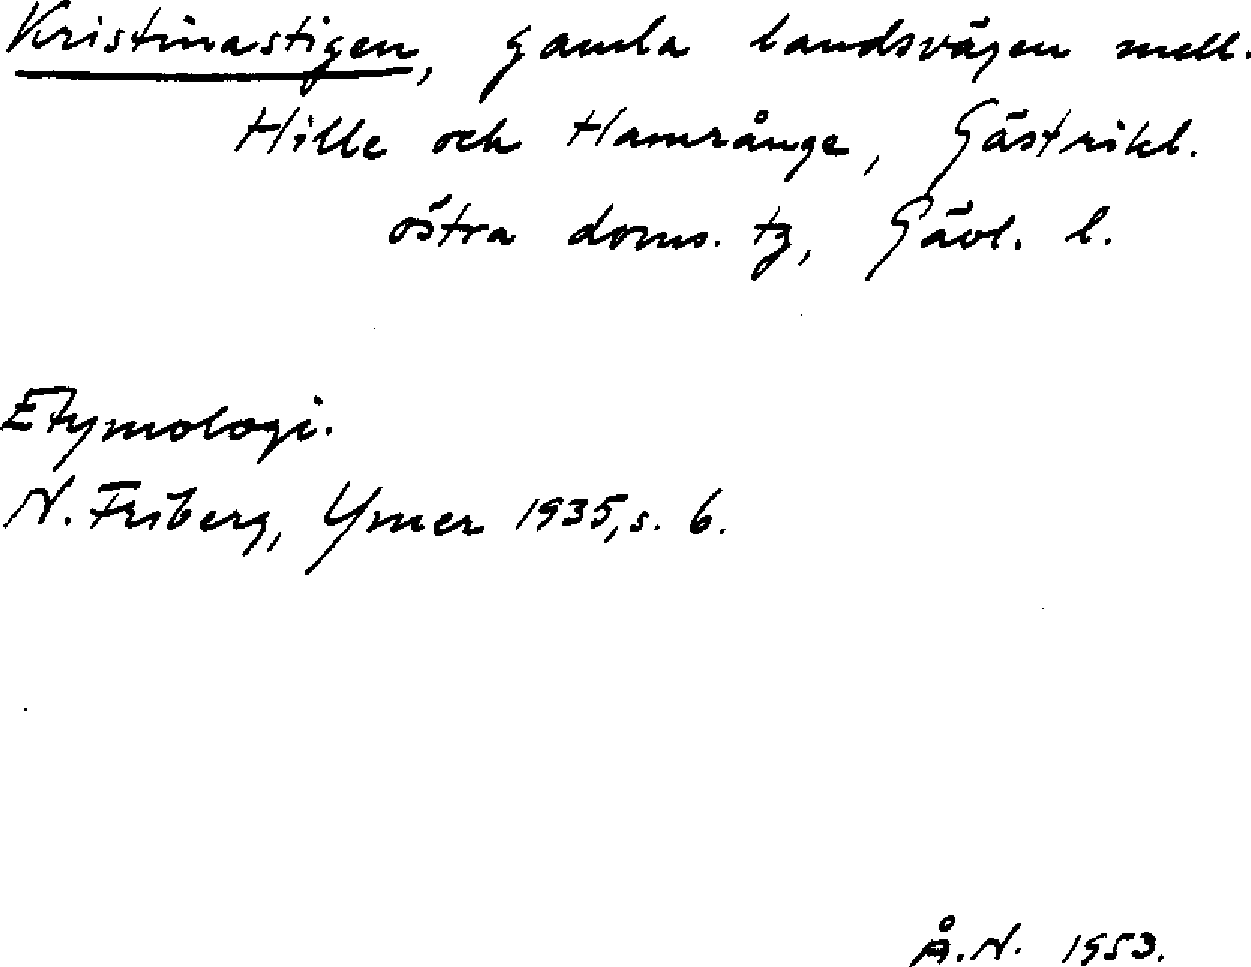 Kristinastigen, gamla landsvägen mell.
Hille och Hamrånge, Gästrikl.
östra doms. tg, Gävl. l.
Etymologi.
N. Friberg, Ymer 1935, s. 6.
Å.N. 1953.